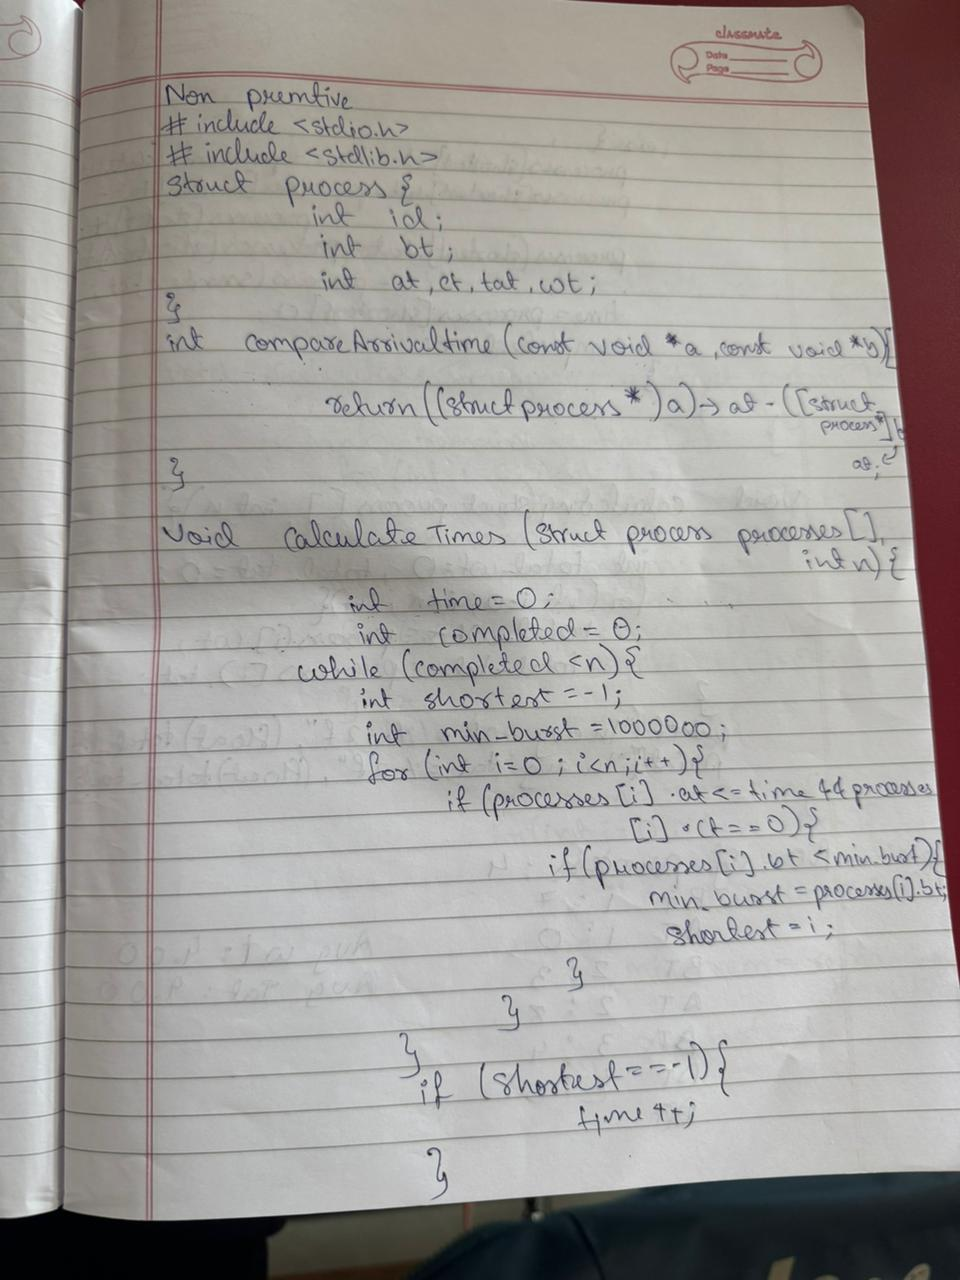 classmate
Date
Page
Non premtive
# include <stdio.h>
# include <stdlib.h>
struct process {
int id;
int bt;
int at, ct, tat, wt;
}
int compareArrivaltime (const void *a, const void *b){
return((struct process*)a)->at - ([struct
process*]b
at;
}
void calculateTimes (struct process processes[],
int n){
int time = 0;
int completed = 0;
while (completed <n){
int shortest = -1;
int min_burst = 1000000;
for (int i=0; i<n; i++){
if (processes[i].at <= time && processes
[i].ct == 0){
if (processes[i].bt < min.burst){
min_burst = processes[i].bt;
shortest = i;
}
}
}
if (shortest == -1){
time ++;
}